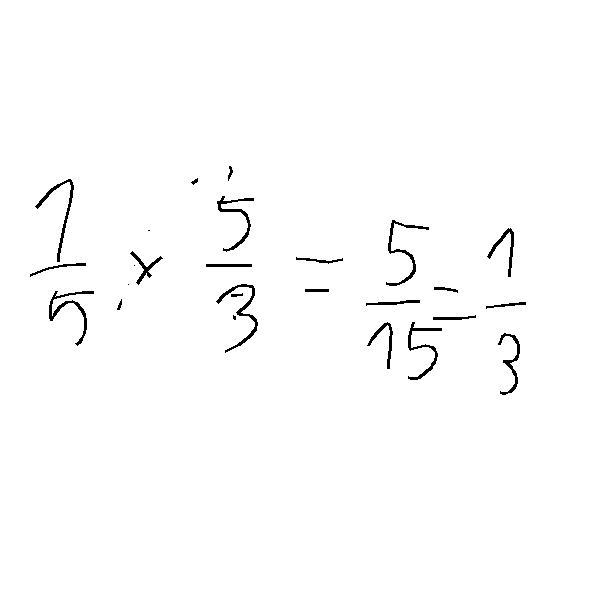 1/5 × 5/3 = 5/15 = 1/3